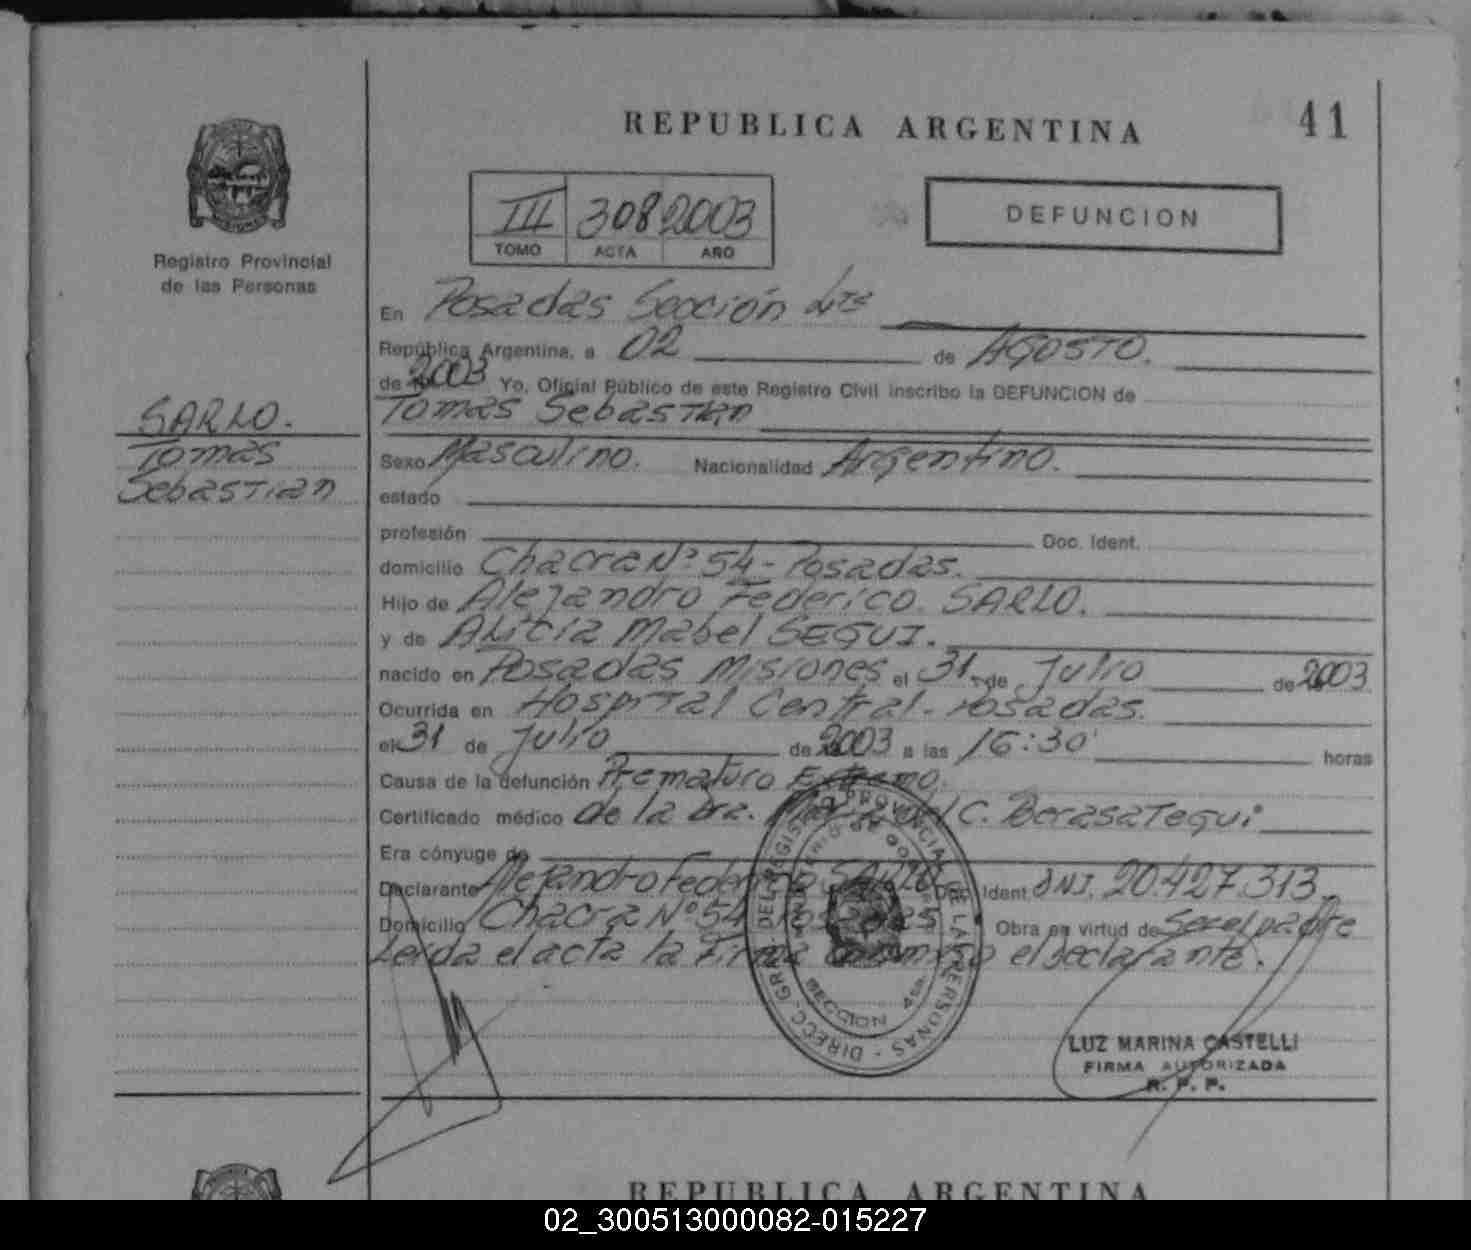 REPUBLICA ARGENTINA
41
III 308 2003
TOMO ACTA AÑO
DEFUNCION
Registro Provincial
de las Personas
En Posadas Sección 4ta
República Argentina, a 02 de AGOSTO.
de 2003 Yo, Oficial Público de este Registro Civil inscribo la DEFUNCION de
SARLO.
Tomas
Sebastian
Tomas Sebastian
Sexo Masculino. Nacionalidad Argentino.
estado
profesión Doc. Ident.
domicilio Chacra Nº 54 - Posadas.
Hijo de Alejandro Federico SARLO.
y de Alicia Mabel SEGUI.
nacido en Posadas Misiones el 31 de Julio de 2003
Ocurrida en Hospital Central - Posadas.
el 31 de Julio de 2003 a las 16:30 horas
Causa de la defunción Prematuro Extremo.
Certificado médico de la Dra. C. Berasategui
Era cónyuge de
Declarante Alejandro Federico SARLO Doc. Ident. DNI. 20.427.313
Domicilio Chacra Nº 54 Posadas Obra en virtud de Ser el padre
Leida el acta la Firma el declarante.
DIRECC. GRAL. DEL REGISTRO PROVINCIAL DE LAS PERSONAS
SECCION 4ta
LUZ MARINA CASTELLI
FIRMA AUTORIZADA
R. P. P.
REPUBLICA ARGENTINA
02_300513000082-015227